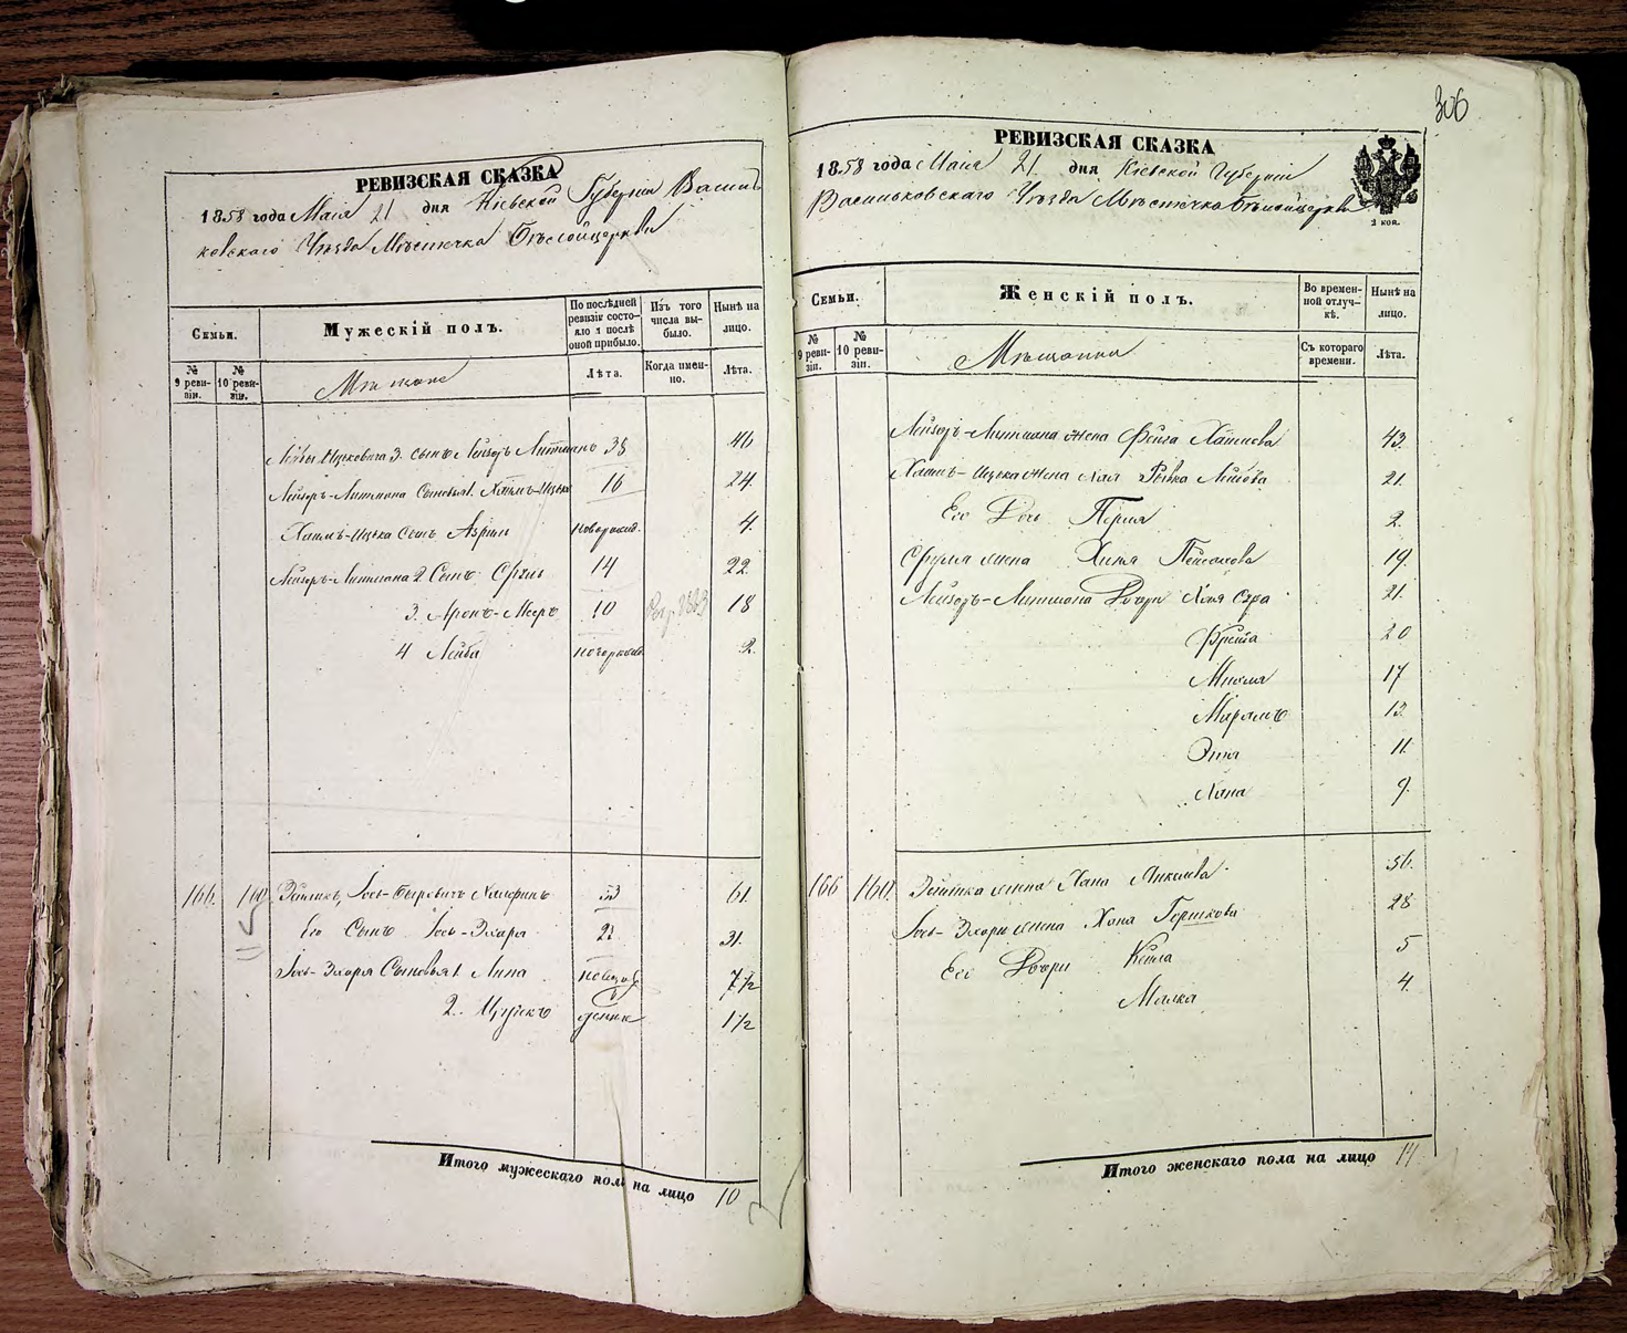 306
РЕВИЗСКАЯ СКАЗКА
1858 года Маія 21 дня Кіевской Губерніи Василь
ковскаго Уѣзда Мѣстечка Бѣлойцеркви
Семьи.
Мужескій полъ.
По послѣдней ревизіи состояло и послѣ оной прибыло.
Изъ того числа выбыло.
Нынѣ на лицо.
№ 9 ревизіи.
№ 10 ревизіи.
Мѣщане
Лѣта.
Когда именно.
Лѣта.
Ицковича 3. сынъ Лейзоръ Литманъ 38 46
Лейзоръ-Литмана Сыновья 1. Хаимъ-Ицько 16 24
Хаимъ-Ицька Сынъ Азриль новорожд. 4
Лейзоръ-Литмана 2 Сынъ Сруль 14 22
3. Аронъ-Мееръ 10 18
4 Лейба новорожд 2
166 160 Иось-Беркович 61
Его Сынъ Іось-Элхоря 23 31
Іось-Элхоря Сыновья 1. 7 1/2
2. 1 1/2
Итого мужескаго пола на лицо 10
РЕВИЗСКАЯ СКАЗКА
1858 года Маія 21 дня Кіевской Губерніи
Васильковскаго Уѣзда Мѣстечка Бѣлойцеркви
2 коп.
Семьи.
Женскій полъ.
Во временной отлучкѣ.
Нынѣ на лицо.
№ 9 ревизіи.
№ 10 ревизіи.
Мѣщанки
Съ котораго времени.
Лѣта.
Лейзоръ-Литмана жена Фейга Хаимова 43
Хаимъ-Ицька жена Хая Рывка Лейбова 21
Его Дочь Перля 2
Сруля жена Хитя Пейсахова 19
Лейзоръ-Литмана Дочери Хая Сура 21
Фрейда 20
17
Мариамъ 13
Этя 11
Хана 9
166 160 жена Хана Анкелева 56
Іось-Элхори жена Хана Гершкова 28
Его Дочери Кейла 5
Малка 4
Итого женскаго пола на лицо 14